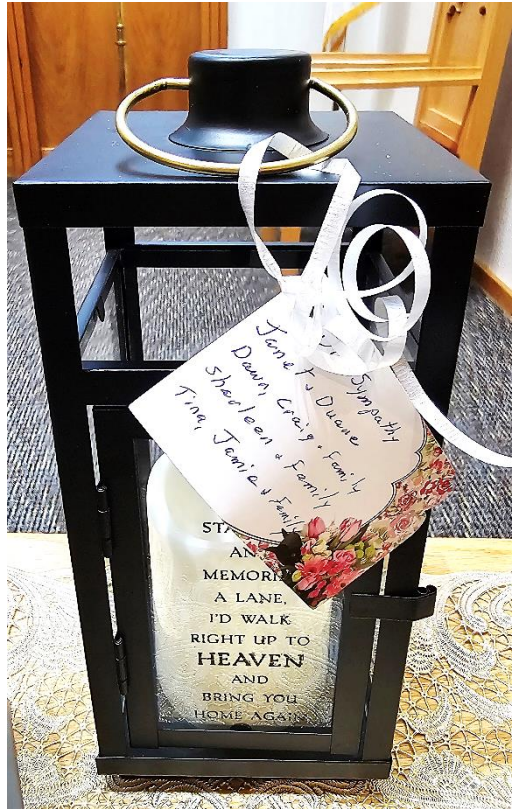 Sympathy
Janet & Duane
Dawn, Craig & Family
Sharleen & Family
Tina, Jamie & Family
STA
AN
MEMORI
A LANE,
I'D WALK
RIGHT UP TO
HEAVEN
AND
BRING YOU
HOME AGAIN